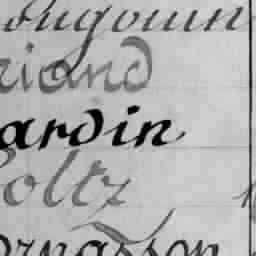 ougouin
riand
ardin
oltz
ornasson